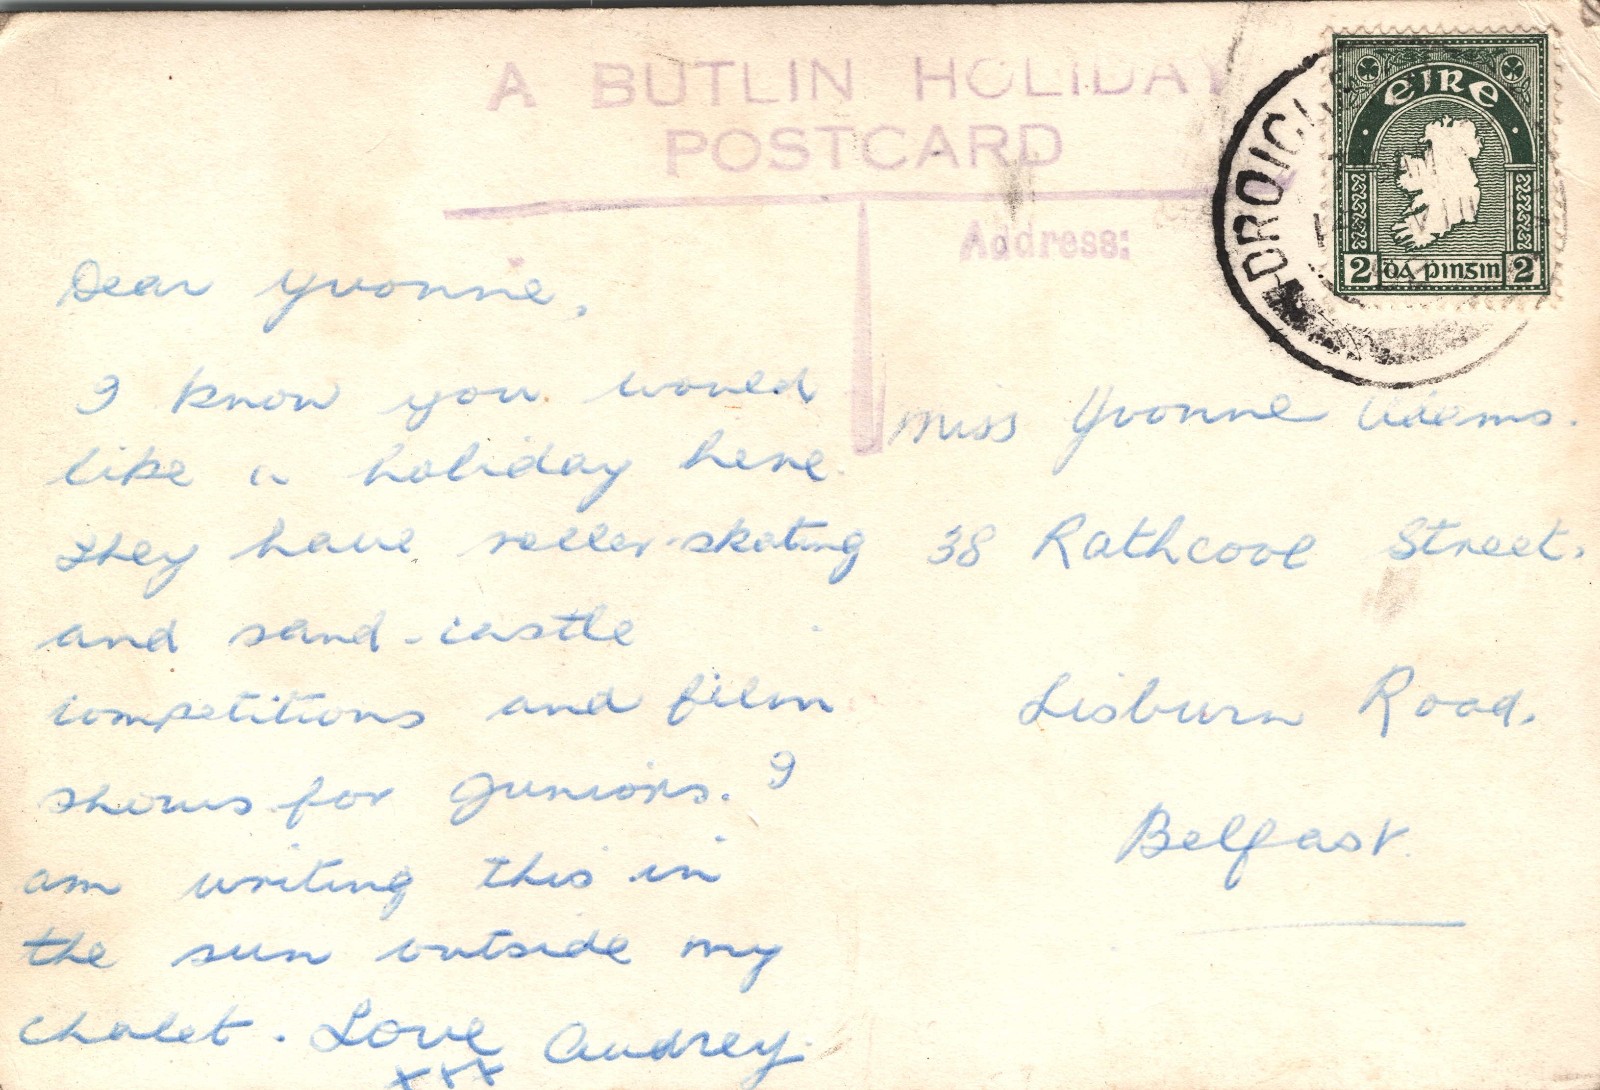 A BUTLIN HOLIDAY
POSTCARD
Address:
ÉIRE
2 dá pingin 2
DROICH
Dear Yvonne,
I know you would
like a holiday here.
They have roller-skating
and sand-castle
competitions and film
shows for juniors. I
am writing this in
the sun outside my
chalet. Love Audrey.
xxx
Miss Yvonne Adams.
38 Rathcool Street.
Lisburn Road.
Belfast.